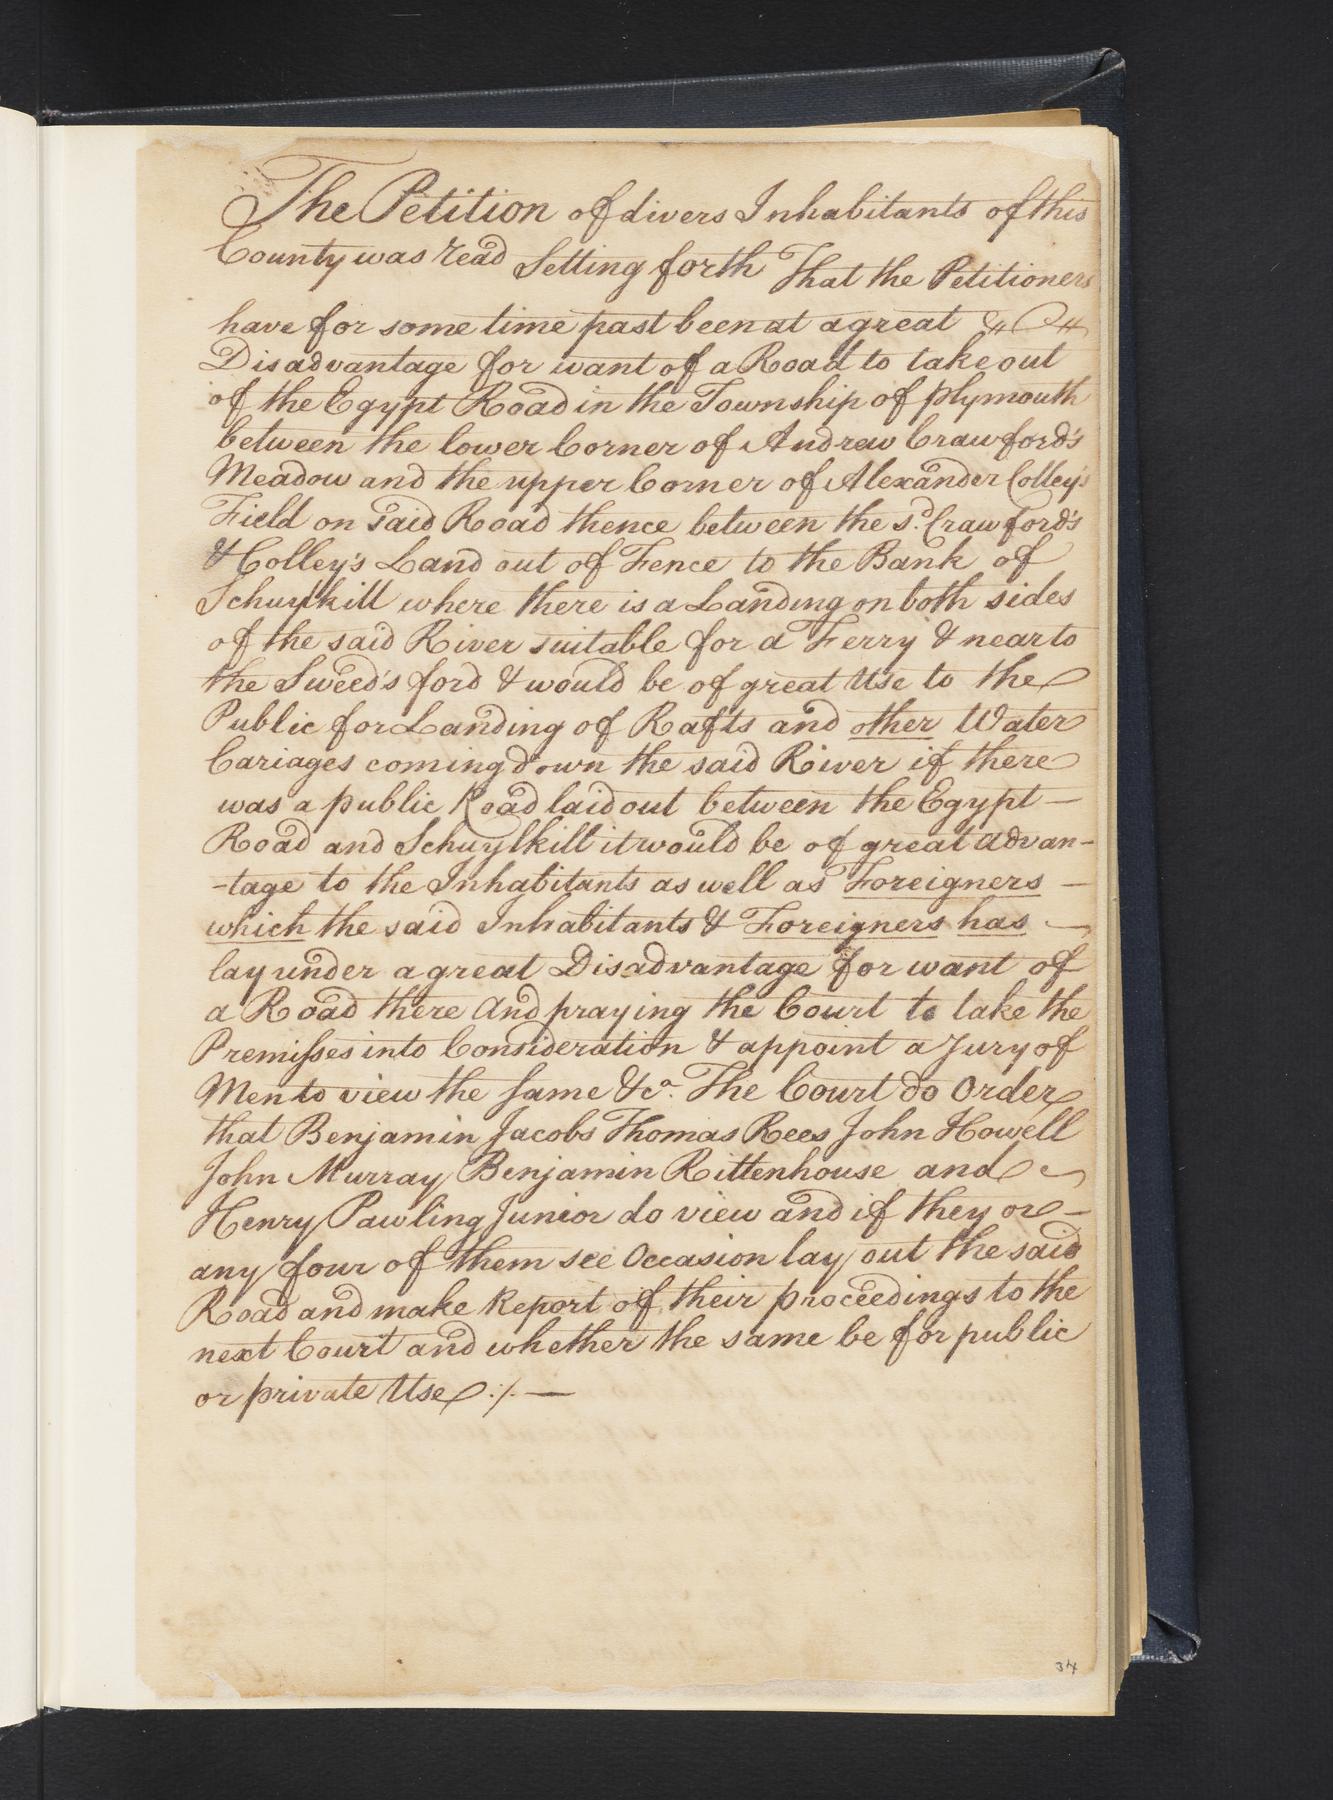 The Petition of divers Inhabitants of this
County was read Setting forth That the Petitioners
have for some time past been at a great
Disadvantage for want of a Road to take out
of the Egypt Road in the Township of plymouth
between the lower Corner of Andrew Crawford's
Meadow and the upper Corner of Alexander Colley's
Field on said Road thence between the sd. Crawford's
& Colley's Land out of Fence to the Bank of
Schuylkill where there is a Landing on both sides
of the said River suitable for a Ferry & near to
the Sweed's ford & would be of great Use to the
Public for Landing of Rafts and other Water
Cariages coming down the said River if there
was a public Road laid out between the Egypt —
Road and Schuylkill it would be of great advan-
-tage to the Inhabitants as well as Foreigners —
which the said Inhabitants & Foreigners has —
lay under a great Disadvantage for want of
a Road there And praying the Court to take the
Premisses into Consideration & appoint a Jury of
Men to view the same &ca. The Court do Order
that Benjamin Jacobs Thomas Rees John Howell
John Murray Benjamin Rittenhouse and
Henry Pawling Junior do view and if they or —
any four of them see Occasion lay out the said
Road and make Report of their proceedings to the
next Court and whether the same be for public
or private Use :/. —
34